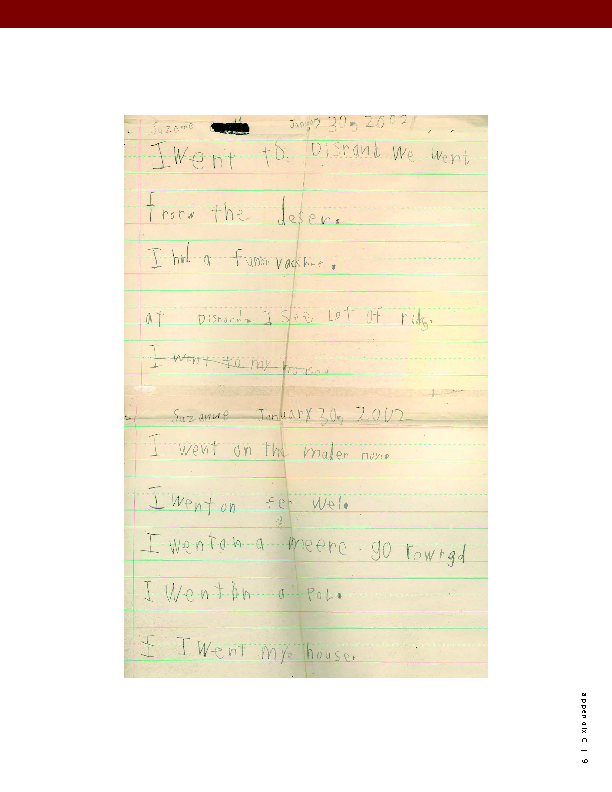 Suzanne January 30, 2002
I Went to. Disnand We went
from the deser.
I had a funn vacshne.
at Disnand. I See Lot of rids.
I went to my house
Suzanne January 30, 2002
I went on the mater none
I went on fer wel.
I went on a meere-go rowngd
I Went on a
I I Went mye house.
appendix C | 9